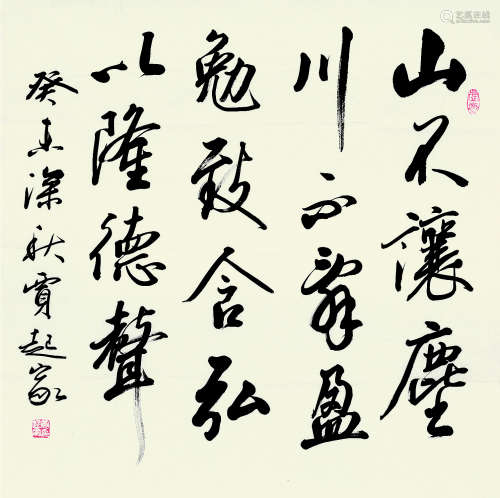 山不讓塵
川不辭盈
勉致含弘
以隆德聲
癸未深秋賈起家